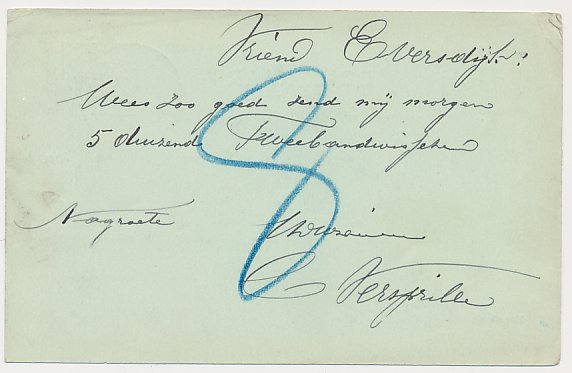 Vriend Eversdijk!
Wees zoo goed zend mij morgen
5 duizend Tweebandwisschen
Na groete
C Versprille
8